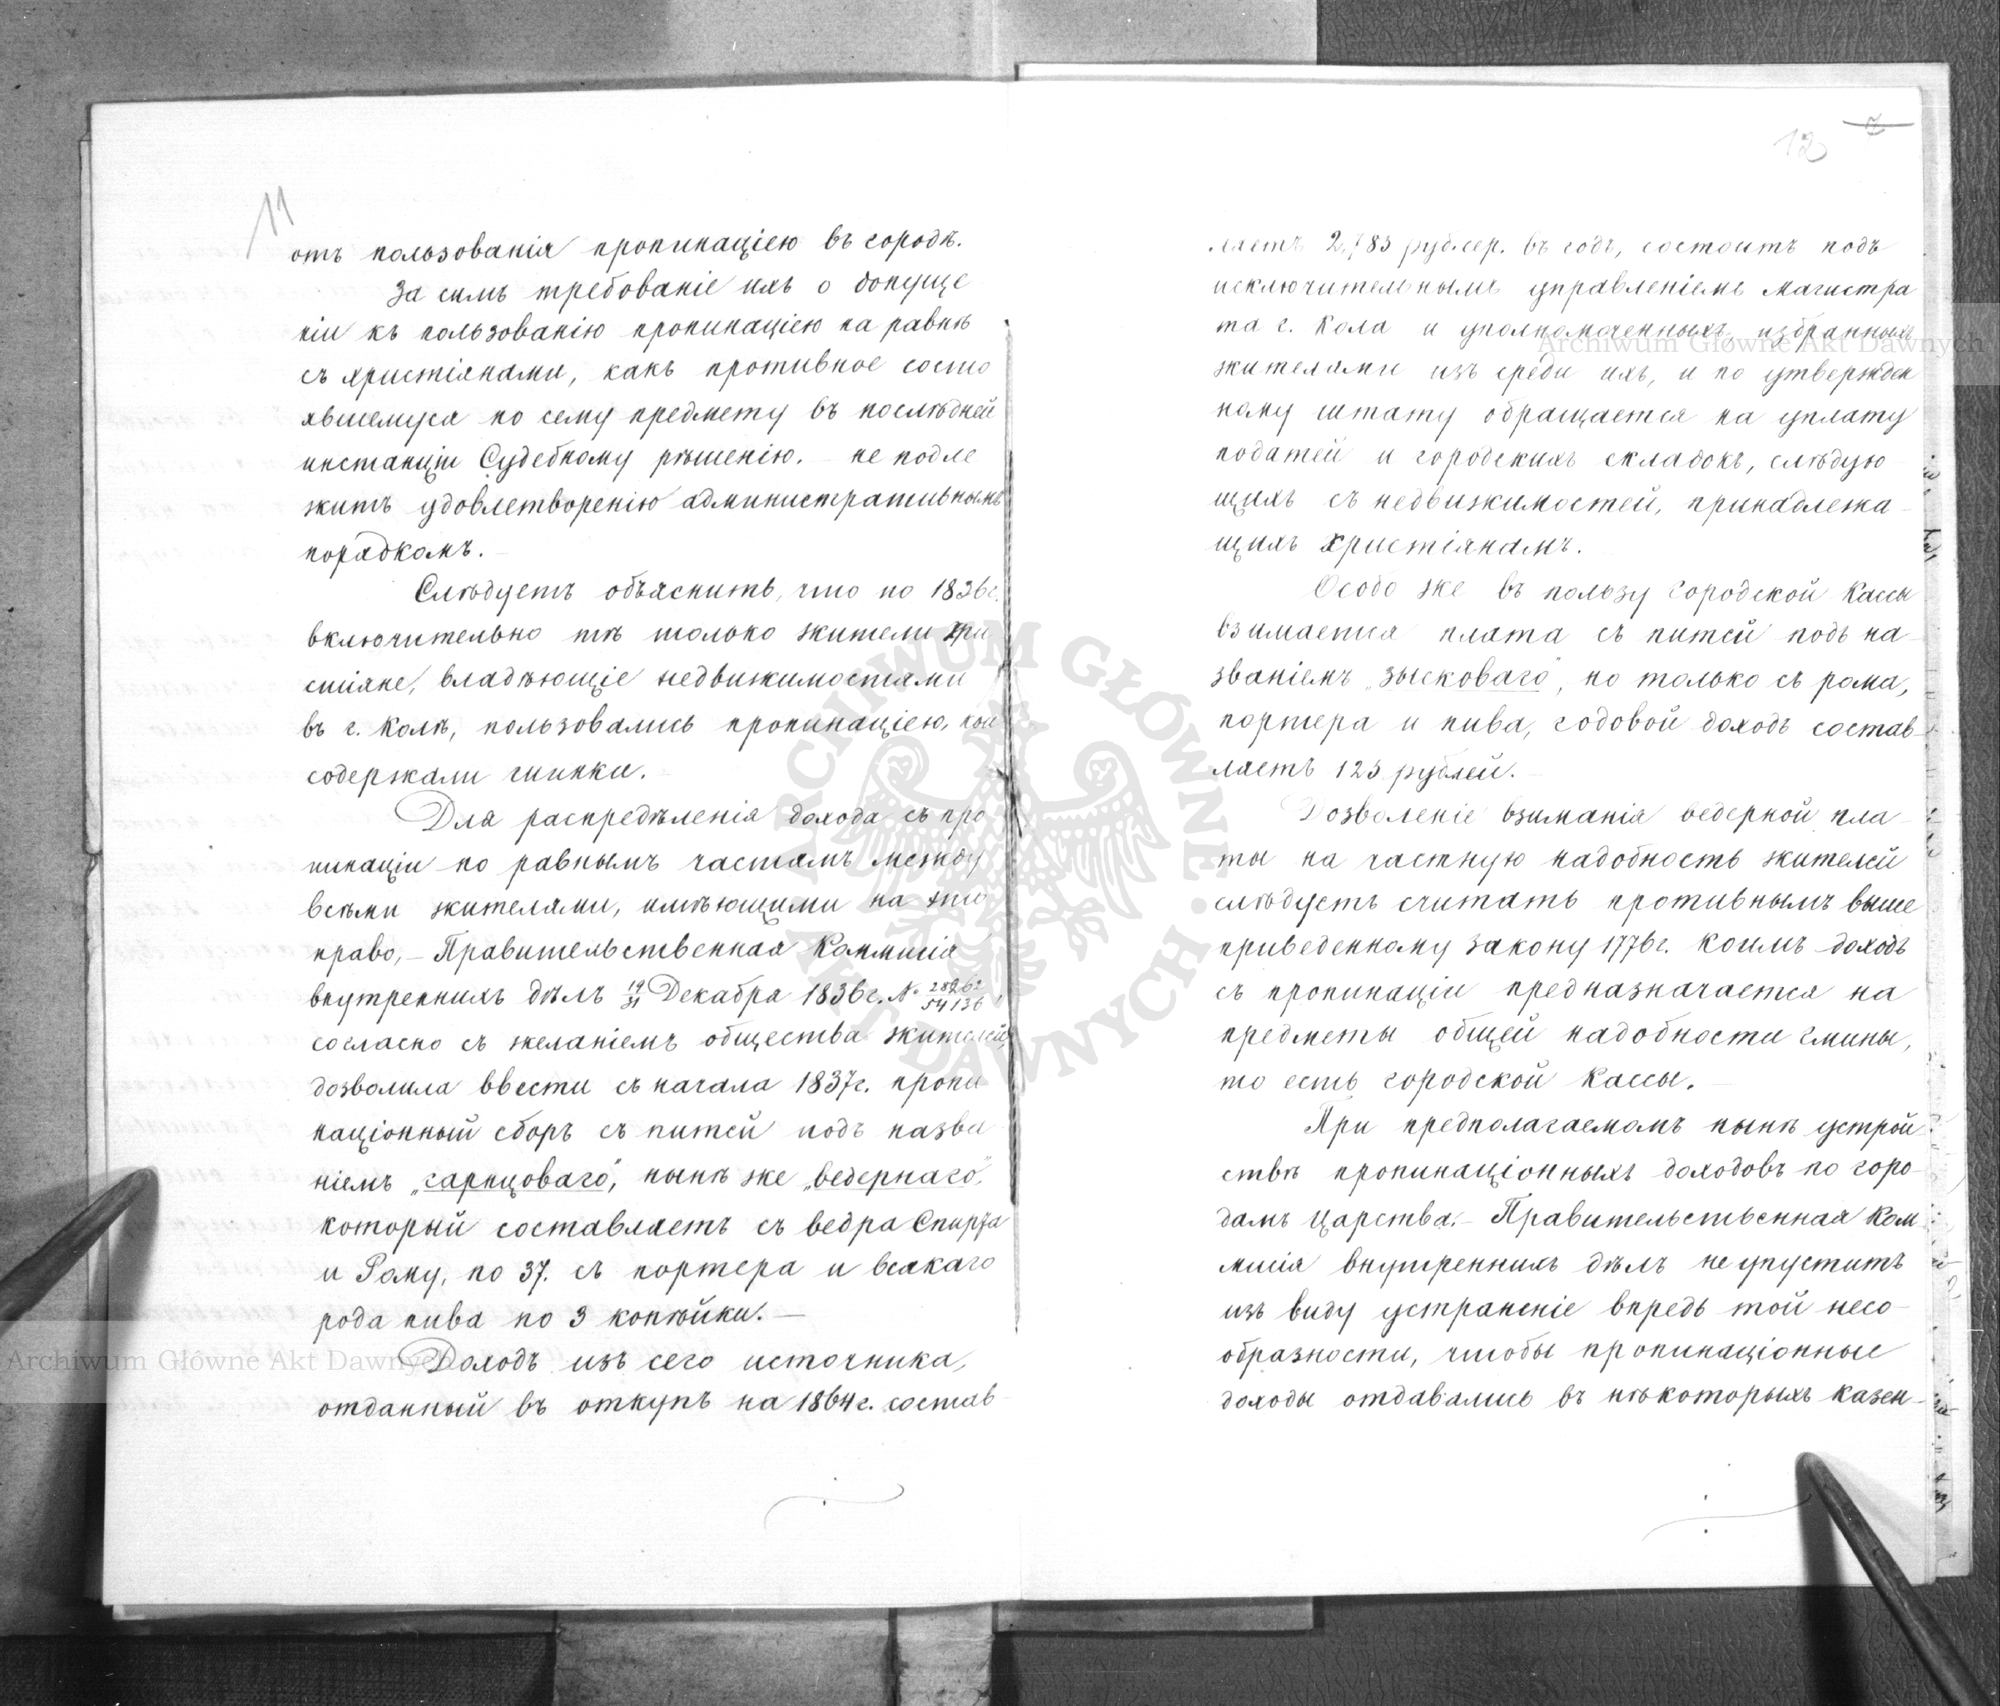 11
отъ пользованія пропинаціею въ городѣ.
За симъ требованіе ихъ о допуще
ніи къ пользованію пропинаціею на равнѣ
съ христіянами, какъ противное состо
явшемуся по сему предмету въ послѣдней
инстанціи Судебному рѣшенію. – не подле
житъ удовлетворенію административнымъ
порядкомъ. –
Слѣдуетъ объяснить, что по 1836 г.
включительно тѣ только жители хри
стіяне, владѣющіе недвижимостями
въ г. Колѣ, пользовались пропинаціею, кои
содержали шинки. –
Для распредѣленія дохода съ про
пинаціи по равнымъ частямъ между
всѣми жителями, имѣющими на это
право, – Правительственная Коммисія
внутреннихъ дѣлъ 19/31 Декабря 1836 г. № 28262/54136,
согласно съ желаніемъ общества жителей,
дозволила ввести съ начала 1837 г. пропи
націонный сборъ съ питей подъ назва
ніемъ „гарнцоваго“, нынѣ же „ведернаго“,
который составляетъ съ ведра Спирта
и Рому, по 37. съ портера и всякаго
рода пива по 3 копѣйки. –
Доходъ изъ сего источника,
отданный въ откупъ на 1864 г. состав
12
7
ляетъ 2,783 рублер. въ годъ, состоитъ подъ
исключительнымъ управленіемъ Магистра
та г. Кола и уполномоченныхъ, избранныхъ
жителями изъ среди ихъ, и по утвержден
ному штату обращается на уплату
податей и городскихъ складокъ, слѣдую
щихъ съ недвижимостей, принадлежа
щихъ христіянамъ.
Особо же въ пользу городской Кассы
взимается плата съ питей подъ на
званіемъ „зысковаго“, но только съ рома,
портера и пива, годовой доходъ состав
ляетъ 123 рублей. –
Дозволеніе взиманія ведерной пла
ты на частную надобность жителей
слѣдуетъ считать противнымъ выше
приведенному закону 1776 г. коимъ доходъ
съ пропинаціи предназначается на
предметы общей надобности гмины,
то есть городской Кассы. –
При предполагаемомъ нынѣ устрой
ствѣ пропинаціонныхъ доходовъ по горо
дамъ Царства. – Правительственная Ком
мисія внутреннихъ дѣлъ не упуститъ
изъ виду устраненіе впредь той несо
образности, чтобы пропинаціонные
доходы отдавались въ нѣкоторыхъ казен-
ARCHIWUM GŁÓWNE AKT DAWNYCH
Archiwum Główne Akt Dawnych
Archiwum Główne Akt Dawnych